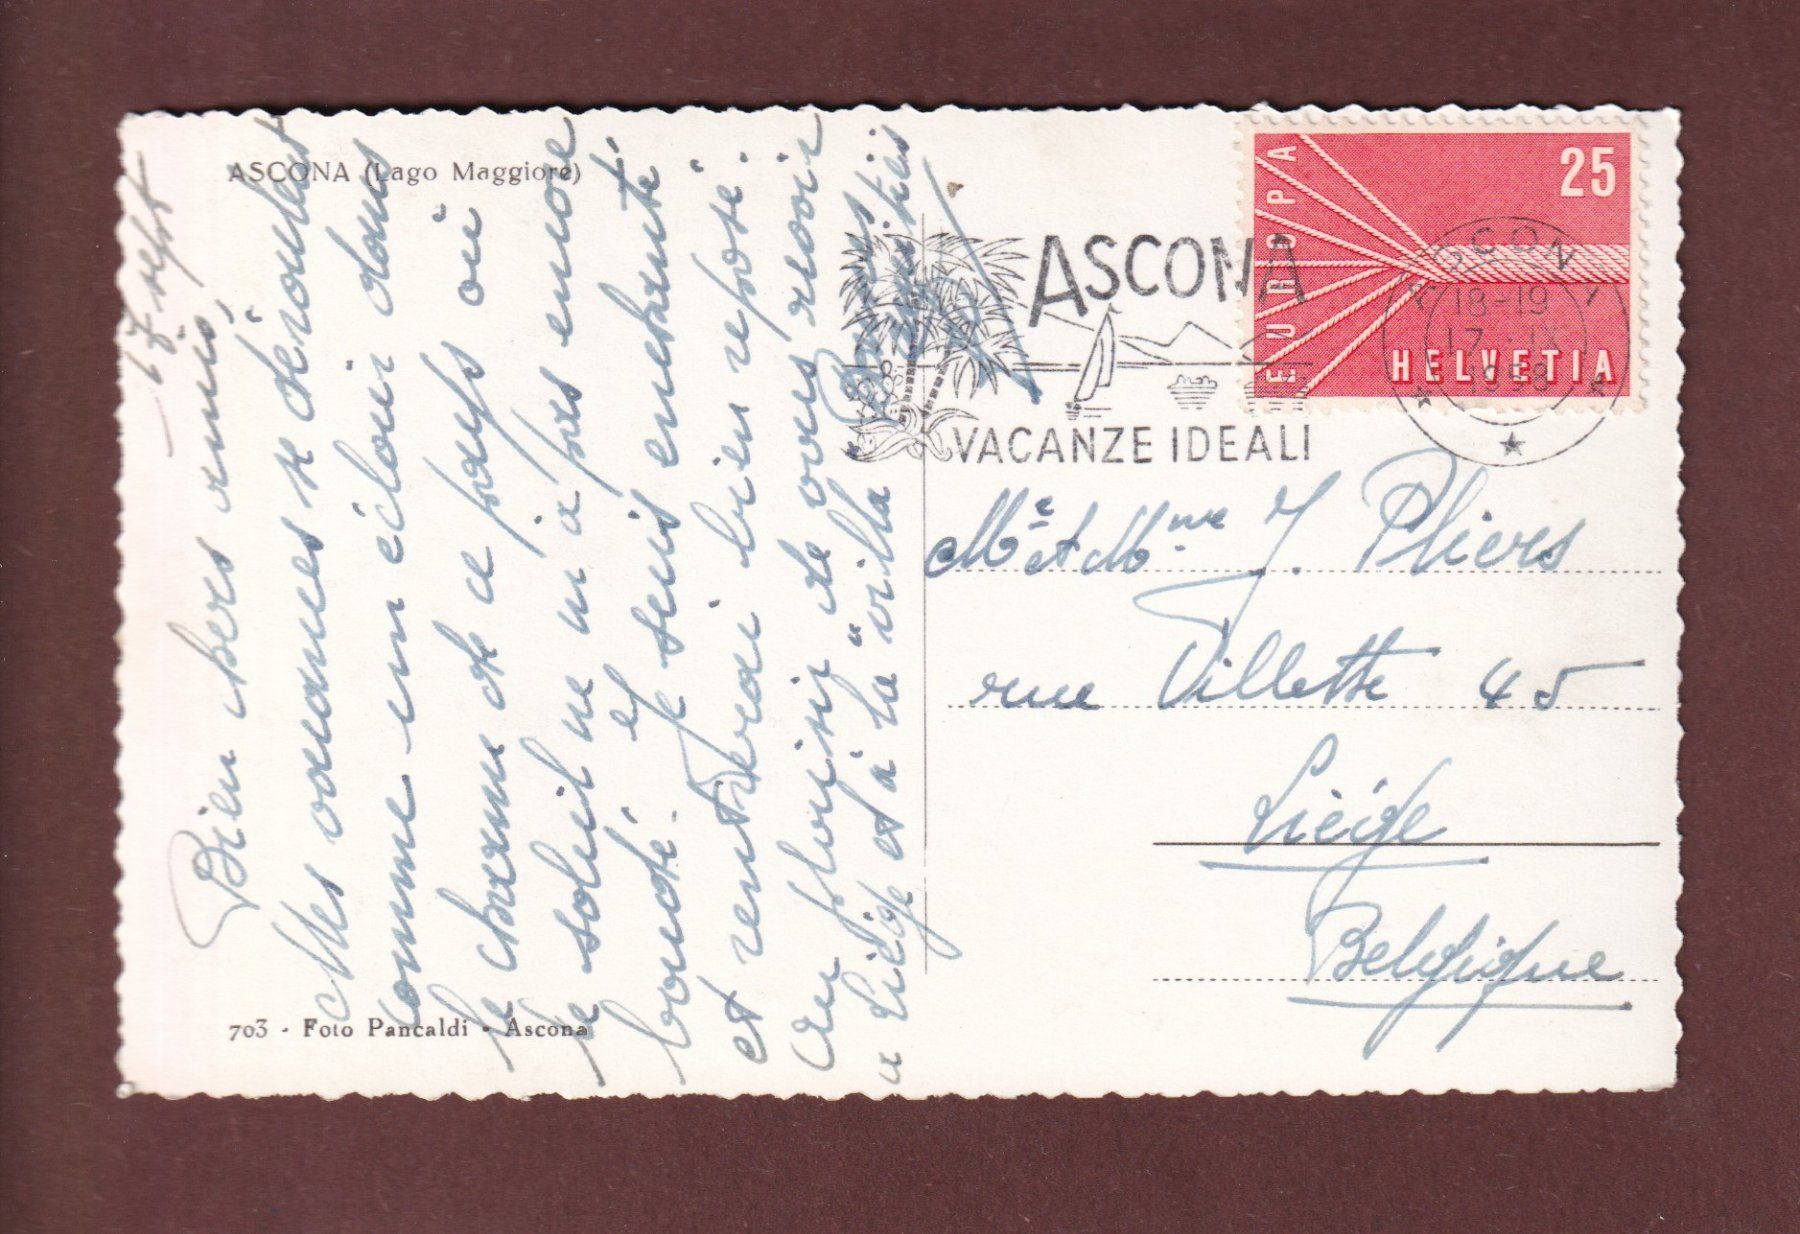 ASCONA (Lago Maggiore)
17 sept
Bien chers amis,
Mes vacances se déroulent
comme un éclair dans
le charme de ce pays où
le soleil ne m'a pas encore
boudé. Je suis enchanté
et rentrerai bien reposé.
Au plaisir de vous revoir
à Liège et à la villa
703 - Foto Pancaldi - Ascona
ASCONA
VACANZE IDEALI
EUROPA
25
HELVETIA
ASCONA
18-19
17. IX
1958
Mr et Mme J. Pliers
rue Villette 45
Liége
Belgique